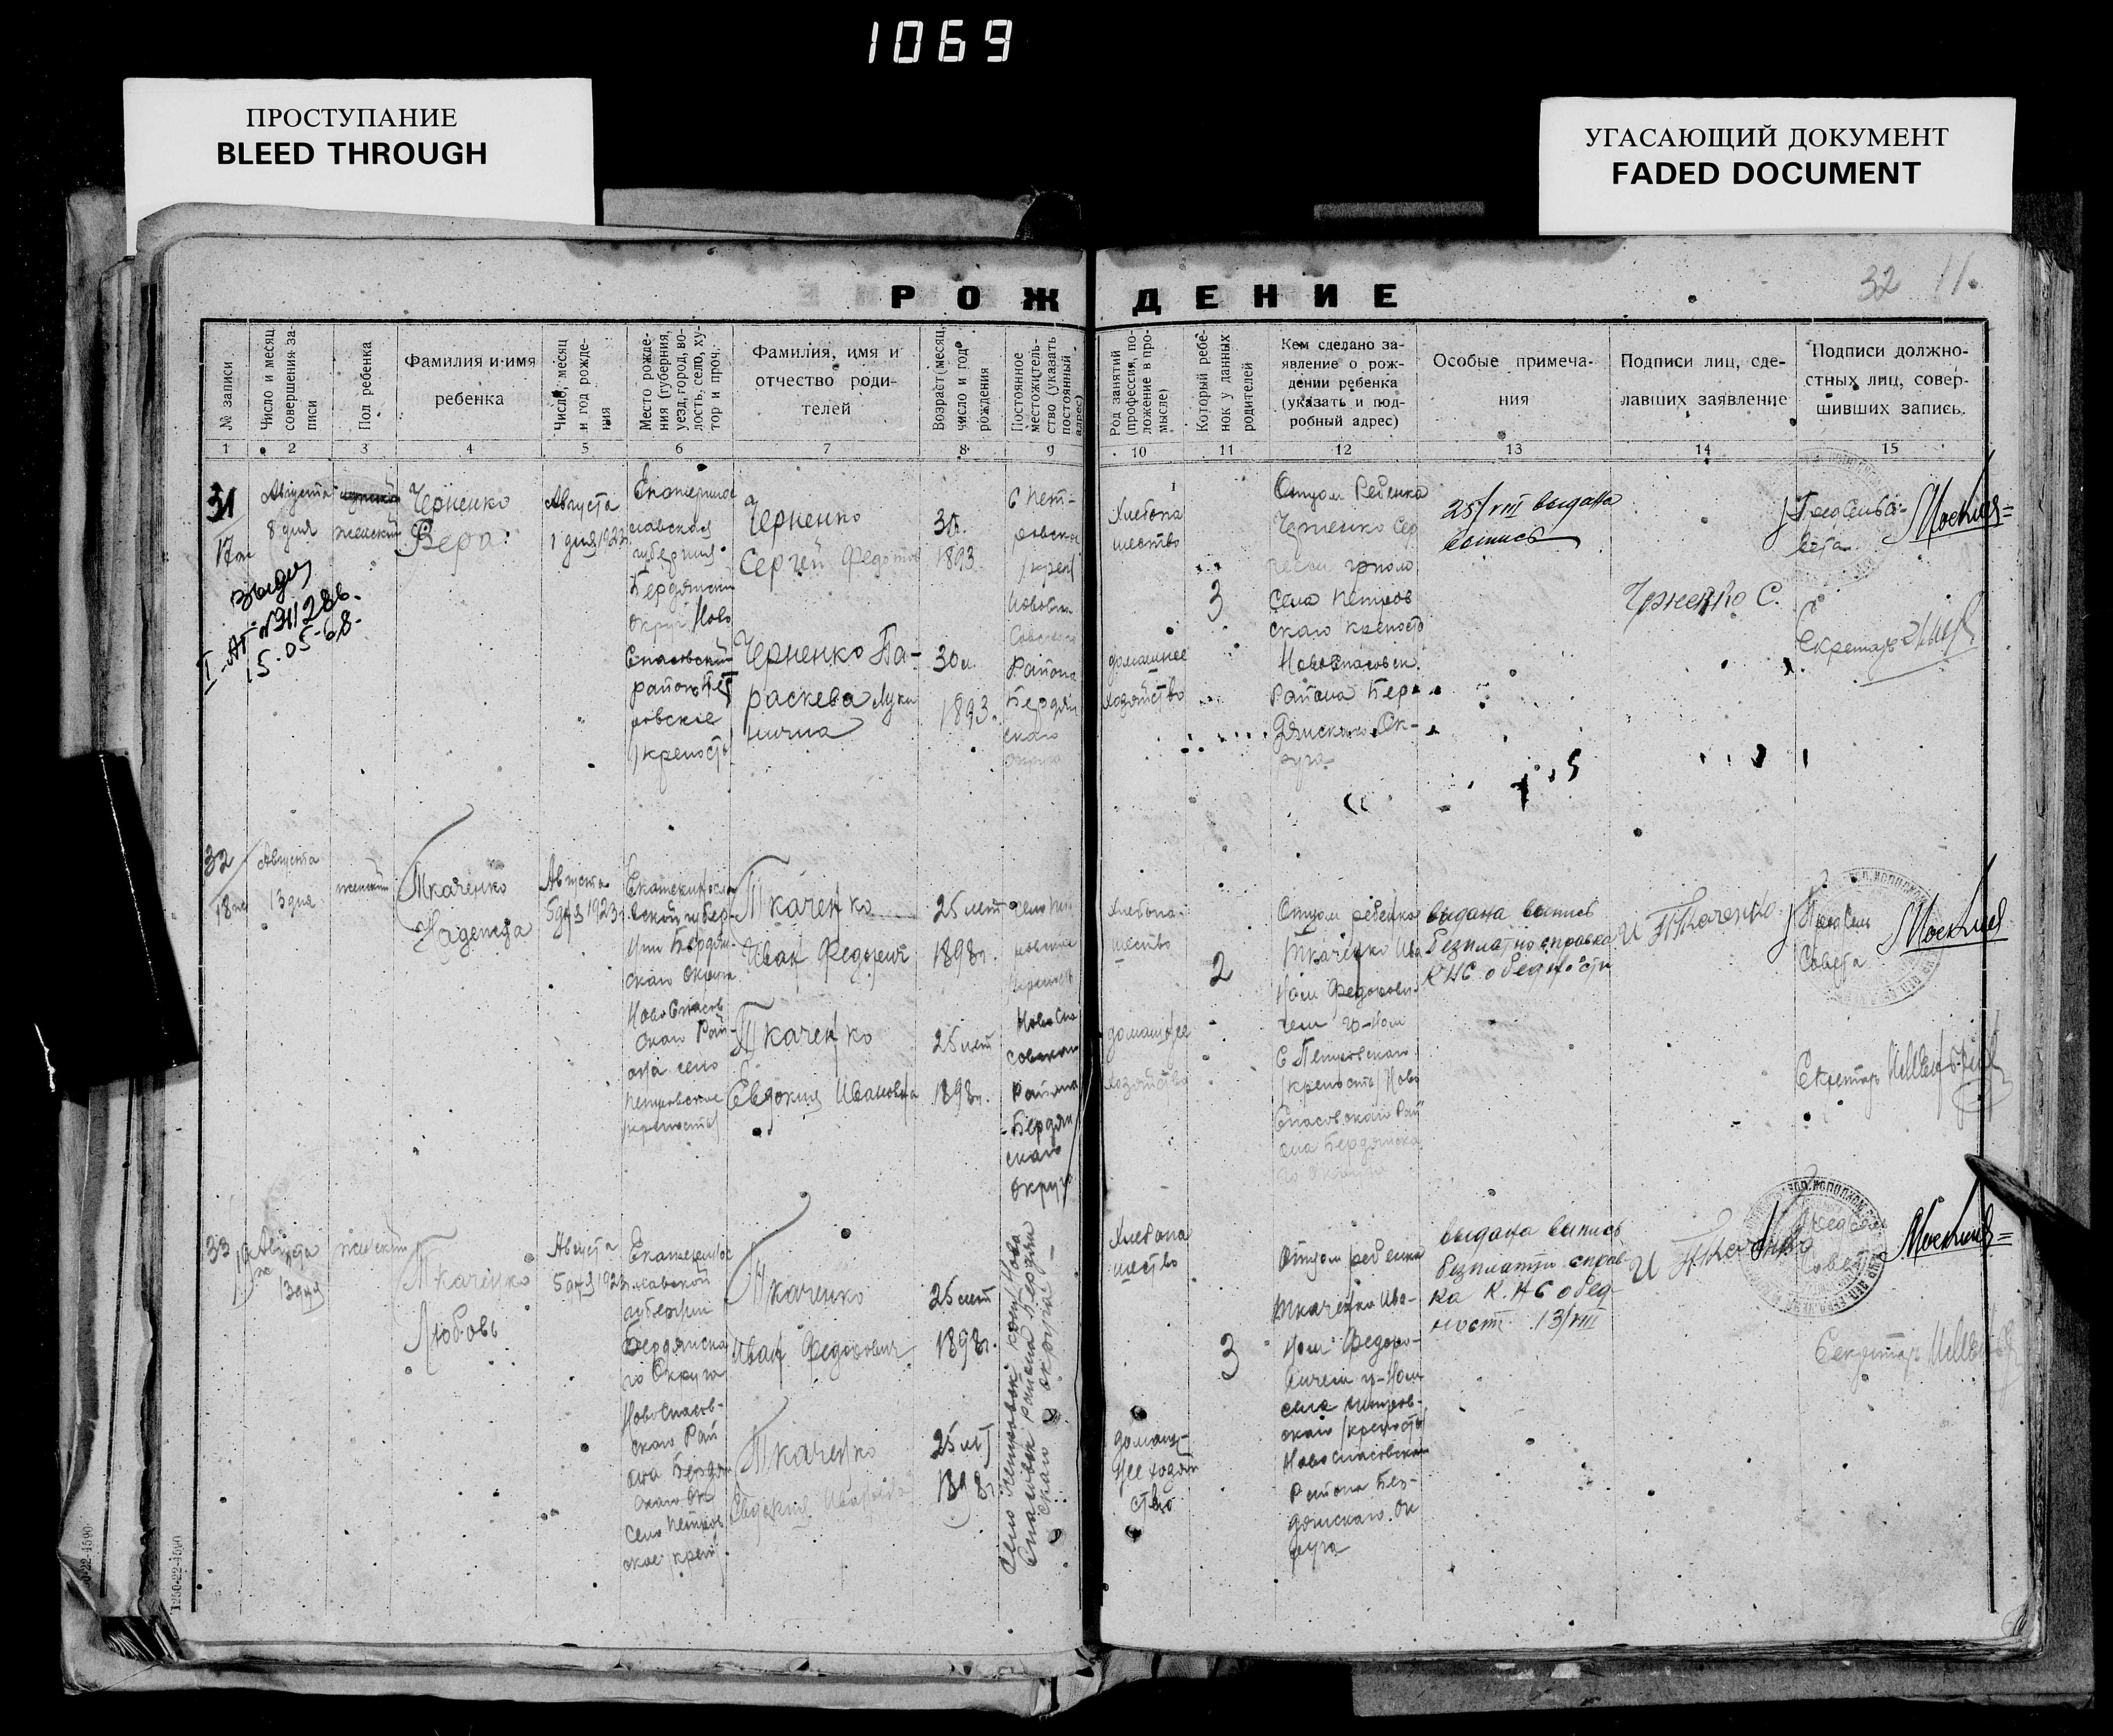 1069
ПРОСТУПАНИЕ
BLEED THROUGH
УГАСАЮЩИЙ ДОКУМЕНТ
FADED DOCUMENT
32 11.
РОЖДЕНИЕ
№ записи
Число и месяц
совершения за-
писи
Пол ребенка
Фамилия и имя
ребенка
Число, месяц
и год рожде-
ния
Место рожде-
ния (губерния,
уезд, город, во-
лость, село, ху-
тор и проч.
Фамилия, имя и
отчество роди-
телей
Возраст (месяц,
число и год
рождения
Постоянное
местожитель-
ство (указать
постоянный
адрес)
Род занятий
(профессия, по-
ложение в про-
мысле)
Который ребе-
нок у данных
родителей
Кем сделано за-
явление о рож-
дении ребенка
(указать и под-
робный адрес)
Особые примеча-
ния
Подписи лиц, сде-
лавших заявление
Подписи должно-
стных лиц, совер-
шивших запись.
1 2 3 4 5 6 7 8 9 10 11 12 13 14 15
31
17ж
I-АП №311286.
15.05-68.
Августа
8 дня
женский
Черненко
Вера
Августа
1 дня 1923
Екатеринос
лавская
губерния
Бердянский
округ Ново
Спасовский
район Пет
ровское
/крепость/
Черненко
Сергей Федотов
Черненко Па-
раскева Луки
нична
1893.
30л
1893.
С Пет-
ровское
/креп/
Района
Бердян
скаго
округа
Хлебопа
шество
домашнее
хозяйство
3
Отцом Ребенка
Черненко Сер
села Петров
скаго /крепость
Новоспасовск.
Района Бер-
дянскаго Ок-
руга
25/VIII выдана
выпись
Черненко С.
Предсельсо-
вета
Секретарь
32
18ж
Августа
13 дня
женский
Ткаченко
Надежда
Августа
5 дня 1923г.
Екатериносла
вской губер-
нии Бердян-
скаго Округа
НовоСпасов
скаго Рай-
она село
Петровское
/крепость/
Ткаченко
Иван Федорович
Ткаченко
Евдокия Ивановна
25 лет
1898г.
25 лет
1898г.
НовоСпа
совскаго
Района
Бердян
скаго
Округа
Хлебопа-
шество
домашнее
хозяйство
2
Отцом ребенка
Ткаченко Ива
ном Федорови-
чем гр-ном
С Петровскаго
/крепость/ Ново
Спасовскаго Рай
она Бердянска
го Округа
выдана выпись
безплатно справка
КНС о бедности
И Ткаченко
Предсель
Совета
Секретарь
33
19ж
Августа
13 дня
женский
Ткаченко
Любовь
Августа
5 дня 1923
Екатеринос
лавской
губернии
Бердянска
го Округа
НовоСпасов-
скаго Рай
она Бердян
скаго Ок
село Петров
ское /креп/
Ткаченко
Иван Федорович
Ткаченко
Евдокия Ивановна
25 лет
1898г.
25 лет
1898
Село Петровское /креп/ Ново
Спасовск района Бердян
скаго округа
Хлебопа
шество
домаш-
нее хозяй
ство
3
Отцом ребенка
Ткаченко Ива-
ном Федоро-
вичем гр-ном
села Петров-
скаго /крепость/
Новоспасовскаго
Района Бер-
дянскаго Ок
руга
выдана выпись
безплатно справ-
ка К.НС о бед-
ност 13/VIII
И Ткаченко
Предс
Совет
Секретарь
1250-22-4590